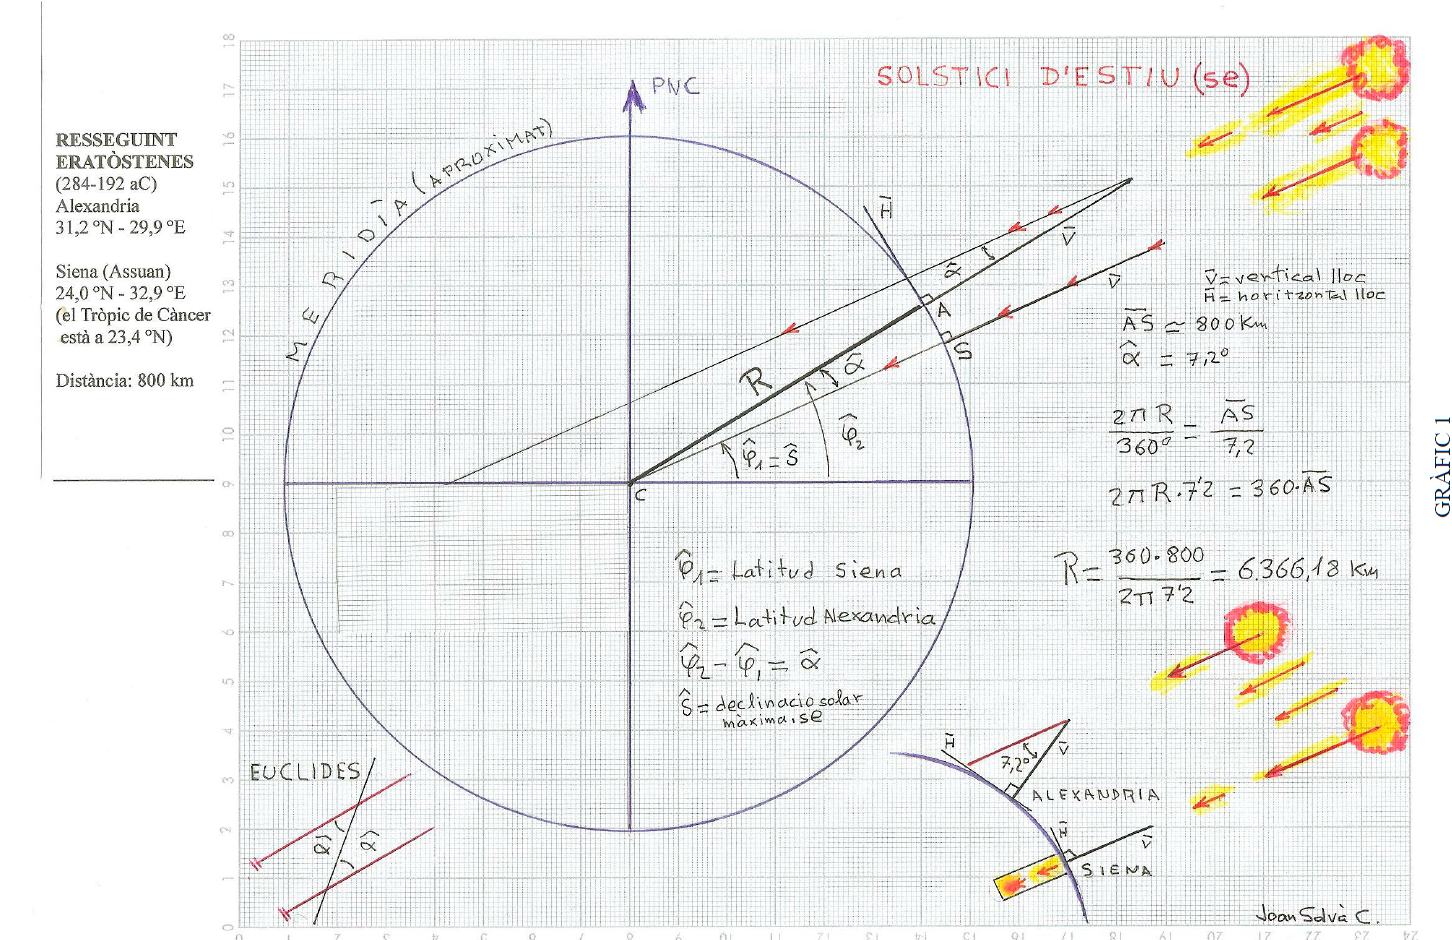 RESSEGUINT
ERATÒSTENES
(284-192 aC)
Alexandria
31,2 ºN - 29,9 ºE
Siena (Assuan)
24,0 ºN - 32,9 ºE
(el Tròpic de Càncer
està a 23,4 ºN)
Distància: 800 km
SOLSTICI D'ESTIU (se)
PNC
MERIDIÀ (APROXIMAT)
H̄
V̄
α̂
V̄
A
S
R
α̂
φ̂2
φ̂1 = δ̂
C
V̄ = vertical lloc
H̄ = horitzontal lloc
A̅S̅ ≃ 800 Km
α̂ = 7,2º
2πR/360º = A̅S̅/7,2
2πR·7'2 = 360·A̅S̅
R = 360·800/2π 7'2 = 6.366,18 Km
φ̂1 = Latitud Siena
φ̂2 = Latitud Alexandria
φ̂2 - φ̂1 = α̂
δ̂ = declinacio solar
màxima.se
EUCLIDES
α̂
α̂
H̄
7,2º
V̄
ALEXANDRIA
H̄
V̄
SIENA
Joan Salvà C.
GRÀFIC 1
18
17
16
15
14
13
12
11
10
9
8
7
6
5
4
3
2
1
0
0 1 2 3 4 5 6 7 8 9 10 11 12 13 14 15 16 17 18 19 20 21 22 23 24